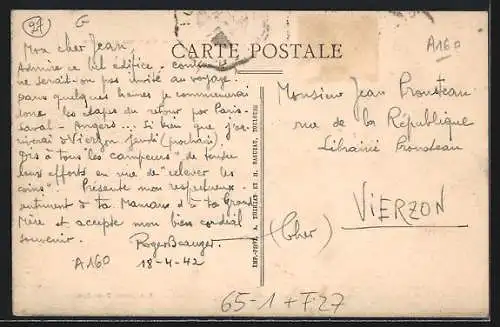 97
G
A160
CARTE POSTALE
Mon cher Jean,
Admire ce bel édifice. comment
ne serait-on pas invité au voyage.
Dans quelques heures je commencerai
donc les étapes du retour par Paris-
Laval - Angers ... Si bien que j'ar-
riverai à Vierzon jeudi (prochain).
Dis à tous "les campeurs" de tendre
leurs efforts en vue de "relever les
coins". Présente mon respectueux
sentiment à ta Maman & à ta Grand
Mère et accepte mon bien cordial
souvenir.
Roger Beauger
A160
18-4-42
Monsieur Jean Prousteau
rue de la République
Librairie Prousteau
VIERZON
(Cher)
65-1+F.27